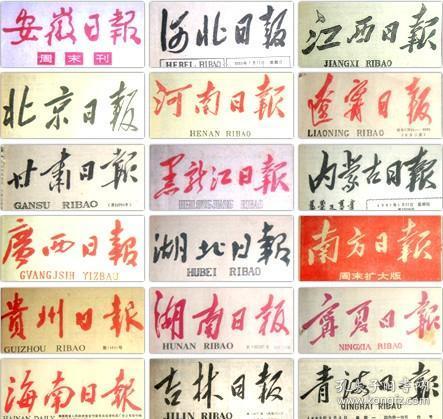 安徽日報
周末刊
河北日報
HEBEI RIBAO
江西日報
JIANGXI RIBAO
北京日報
河南日報
HENAN RIBAO
遼寧日報
LIAONING RIBAO
甘肅日報
GANSU RIBAO
黑龍江日報
HEILONGJIANG RIBAO
内蒙古日報
廣西日報
GVANGJSIH YIZBAU
湖北日報
HUBEI RIBAO
南方日報
周末扩大版
貴州日報
GUIZHOU RIBAO
湖南日报
HUNAN RIBAO
寧夏日報
NINGXIA RIBAO
海南日報
HAINAN DAILY
吉林日报
JILIN RIBAO
青海日報
QINGHAI RIBAO